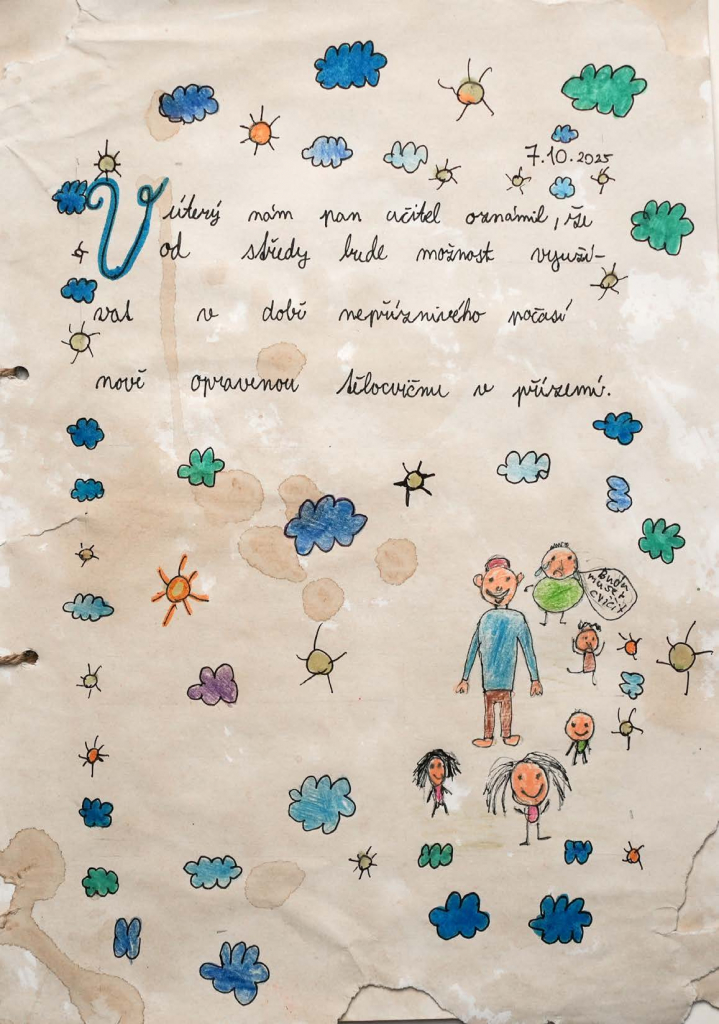 7.10.2025
V úterý nám pan učitel oznámil, že
od středy bude možnost využí-
vat v době nepříznivého počasí
nově opravenou tělocvičnu v přízemí.
Budu
muset
cvičit